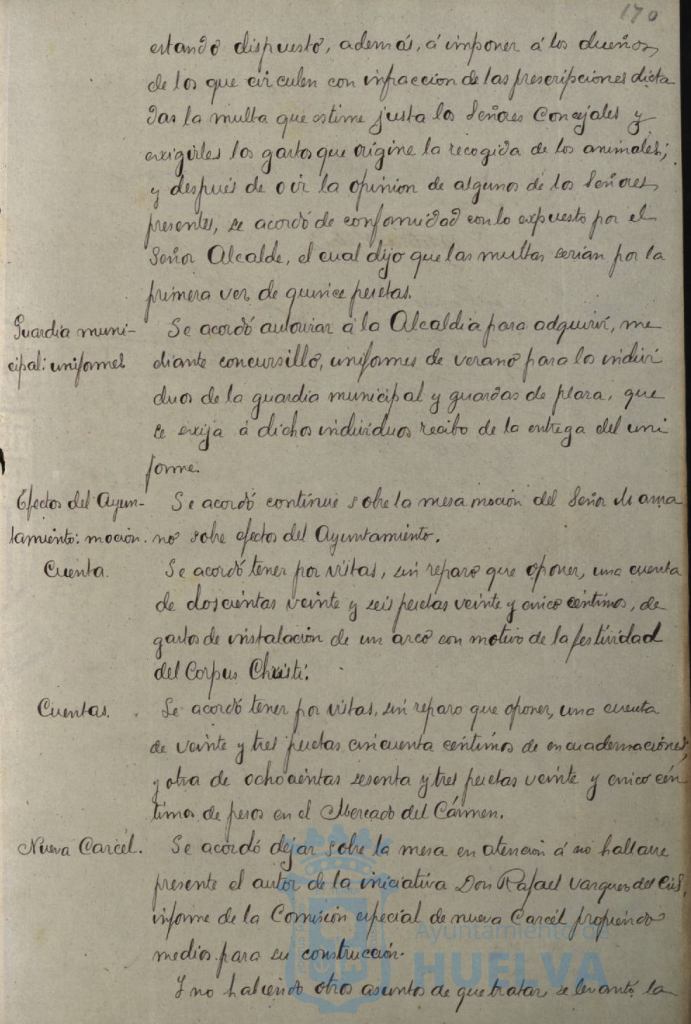 170
estando dispuesto, además, á imponer á los dueños,
de los que circulen con infraccion de las prescripciones dicta
das la multa que estime justa los Señores Concejales y
exigirles los gastos que origine la recogida de los animales;
y después de oir la opinion de algunos de los Señores
presentes, se acordó de conformidad con lo expuesto por el
Señor Alcalde, el cual dijo que las multas serian por la
primera vez de quince pesetas.
Guardia muni-
cipal: uniformes
Se acordó autorizar á la Alcaldia para adquirir, me
diante concursillo, uniformes de verano para los indivi
duos de la guardia municipal y guardas de plaza, que
se exija á dichos individuos recibo de la entrega del uni
forme.
Efectos del Ayun-
tamiento: mocion.
Se acordó continue sobre la mesa mocion del Señor Mama
no sobre efectos del Ayuntamiento.
Cuenta.
Se acordó tener por vistas, sin reparo que oponer, una cuenta
de doscientas veinte y seis pesetas veinte y cinco céntimos, de
gastos de instalación de un arco con motivo de la festividad
del Corpus Christi.
Cuentas.
Se acordó tener por vistas, sin reparo que oponer, una cuenta
de veinte y tres pesetas cincuenta céntimos de encuadernaciónes,
y otra de ochocientas sesenta y tres pesetas veinte y cinco cén
timos de pesos en el Mercado del Cármen.
Nueva Carcél.
Se acordó dejar sobre la mesa en atencion á no hallarse
presente el autor de la iniciativa Don Rafael Vazquez del Cid,
informe de la Comisión especial de nueva Carcél proponiendo
medios para su construcción.
Y no habiendo otros asuntos de que tratar, se levantó la
Ayuntamiento de
HUELVA